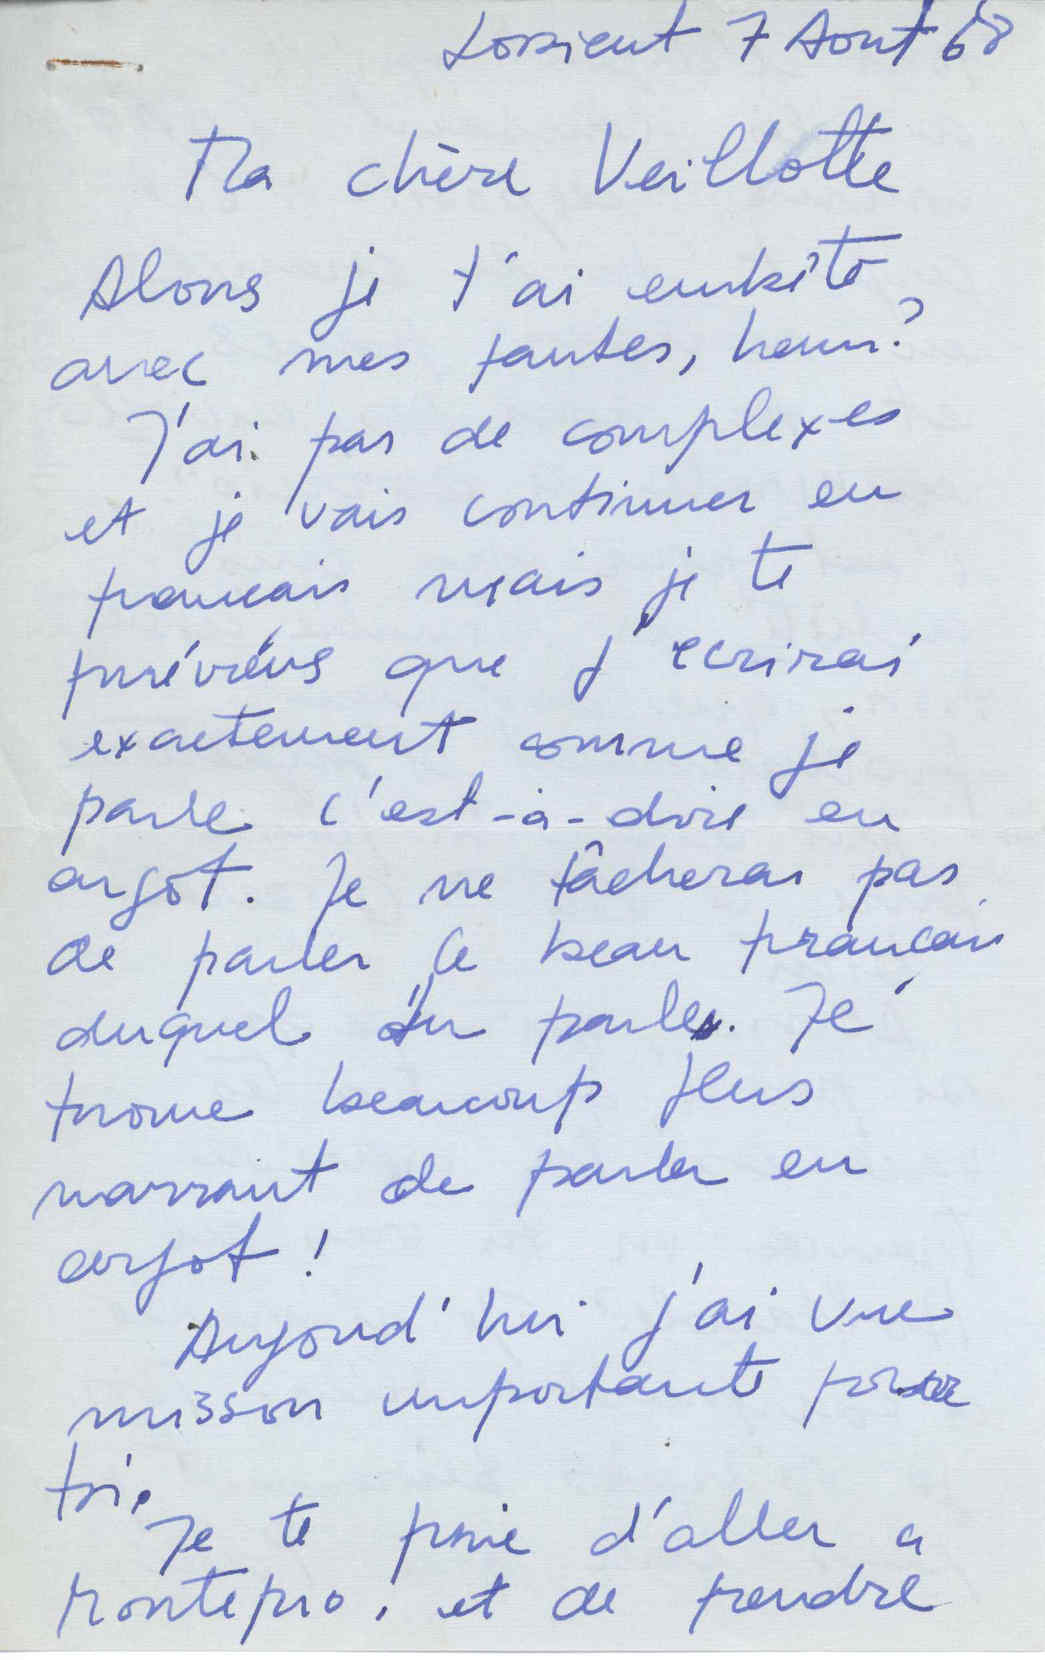 Lorient 7 Aout 68
Ma chère Veillotte
Alors je t'ai embêté
avec mes fautes, hein?
J'ai pas de complexes
et je vais continuer en
francais mais je te
préviens que j'ecrirai
exactement comme je
parle c'est-à-dire en
argot. Je ne tâcherai pas
de parler le beau francais
duquel tu parles. Je
trouve beaucoup plus
marrant de parler en
argot!
Aujourd'hui j'ai une
misson importante pour
toi.
Je te prie d'aller a
et de prendre